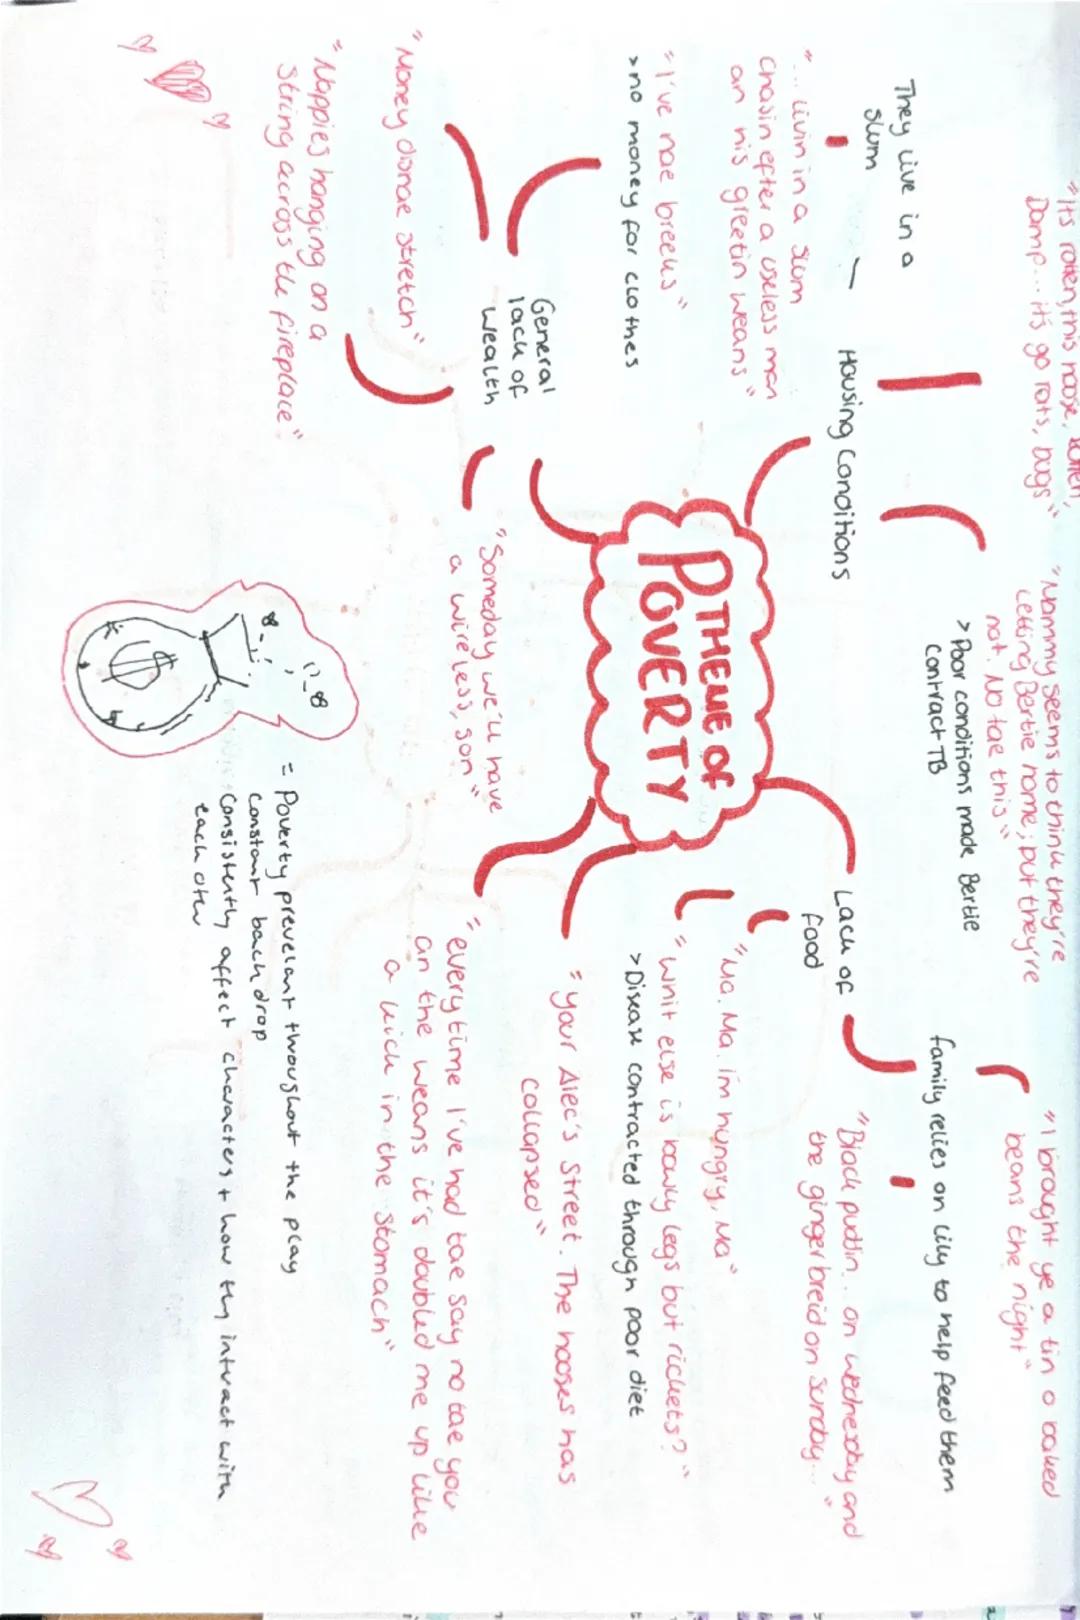 "Its rotten, this hoose, rotten,
Damp... it's go rats, bugs"
"Mammy seems to think they're
letting Bertie home; but they're
not. No tae this"
> Poor conditions made Bertie
contract TB
"I brought ye a tin o baked
beans the night"
family relies on Lily to help feed them
They live in a
slum
Housing Conditions
"... livin in a slum
chasin efter a useless man
an his greetin weans"
"I've nae breeks"
> no money for clothes
THEME OF
POVERTY
Lack of
food
"Black puddin.. on wednesday and
the ginger breid on sunday..."
"Ma. Ma. im hungry, Ma"
"whit else is bowly legs but rickets?"
> Disease contracted through poor diet
General
lack of
wealth
"Money disnae stretch"
"Nappies hanging on a
string across the fireplace"
"Someday we'll have
a wireless, son"
"your Alec's street. The hooses has
collapsed"
"every time I've had tae say no tae you
an the weans it's doubled me up like
a kick in the stomach"
$
= Poverty prevelant thoughout the play
constant backdrop
consistently affect characters + how thy intract with
each other